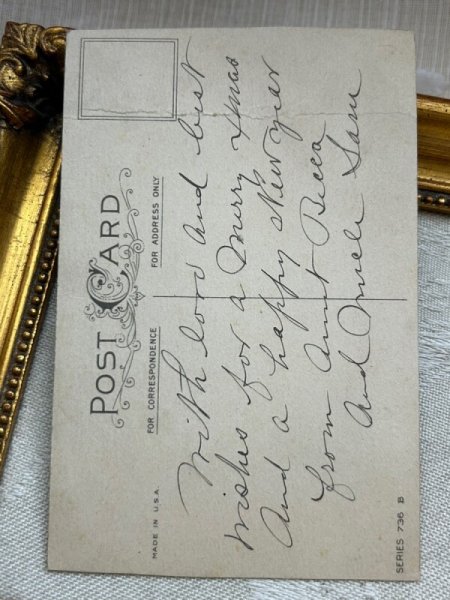 POST CARD
FOR CORRESPONDENCE
FOR ADDRESS ONLY
MADE IN U.S.A.
With love and best
wishes for a Merry Xmas
and a happy New year
from Aunt Becca
and Uncle Sam
SERIES 736 B